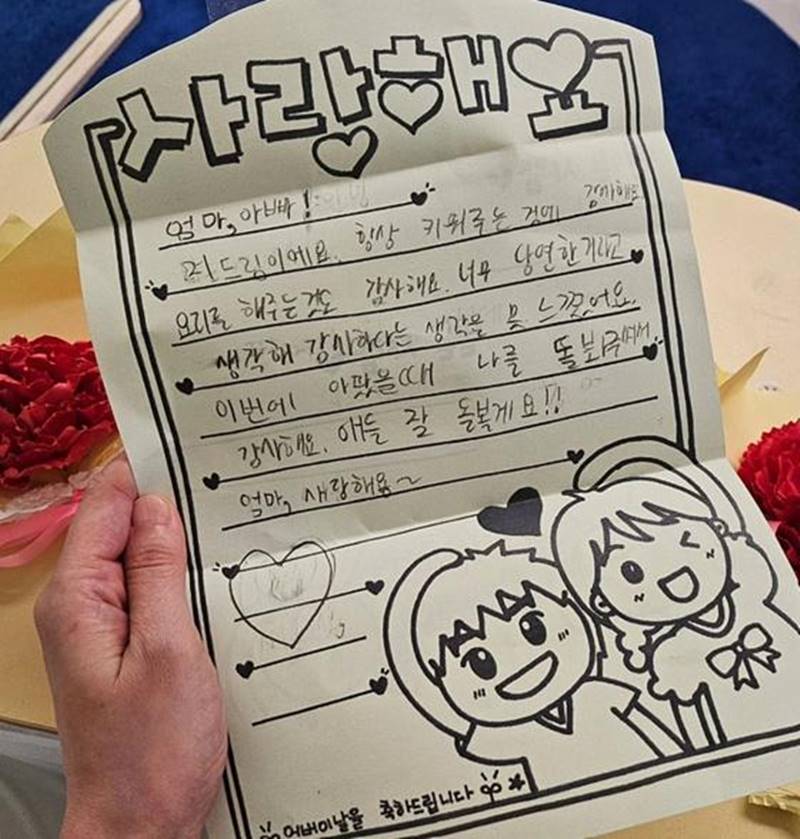 사랑해요
엄마, 아빠!
드림이에요. 항상 키워주는 것에 감사해요
요리를 해주는것도 감사해요. 너무 당연한거라고
생각해 감사하다는 생각을 못 느꼈어요.
이번에 아팠을때 나를 돌봐주셔서
감사해요. 애들 잘 돌볼게요!!
엄마, 사랑해요~
어버이날을 축하드립니다